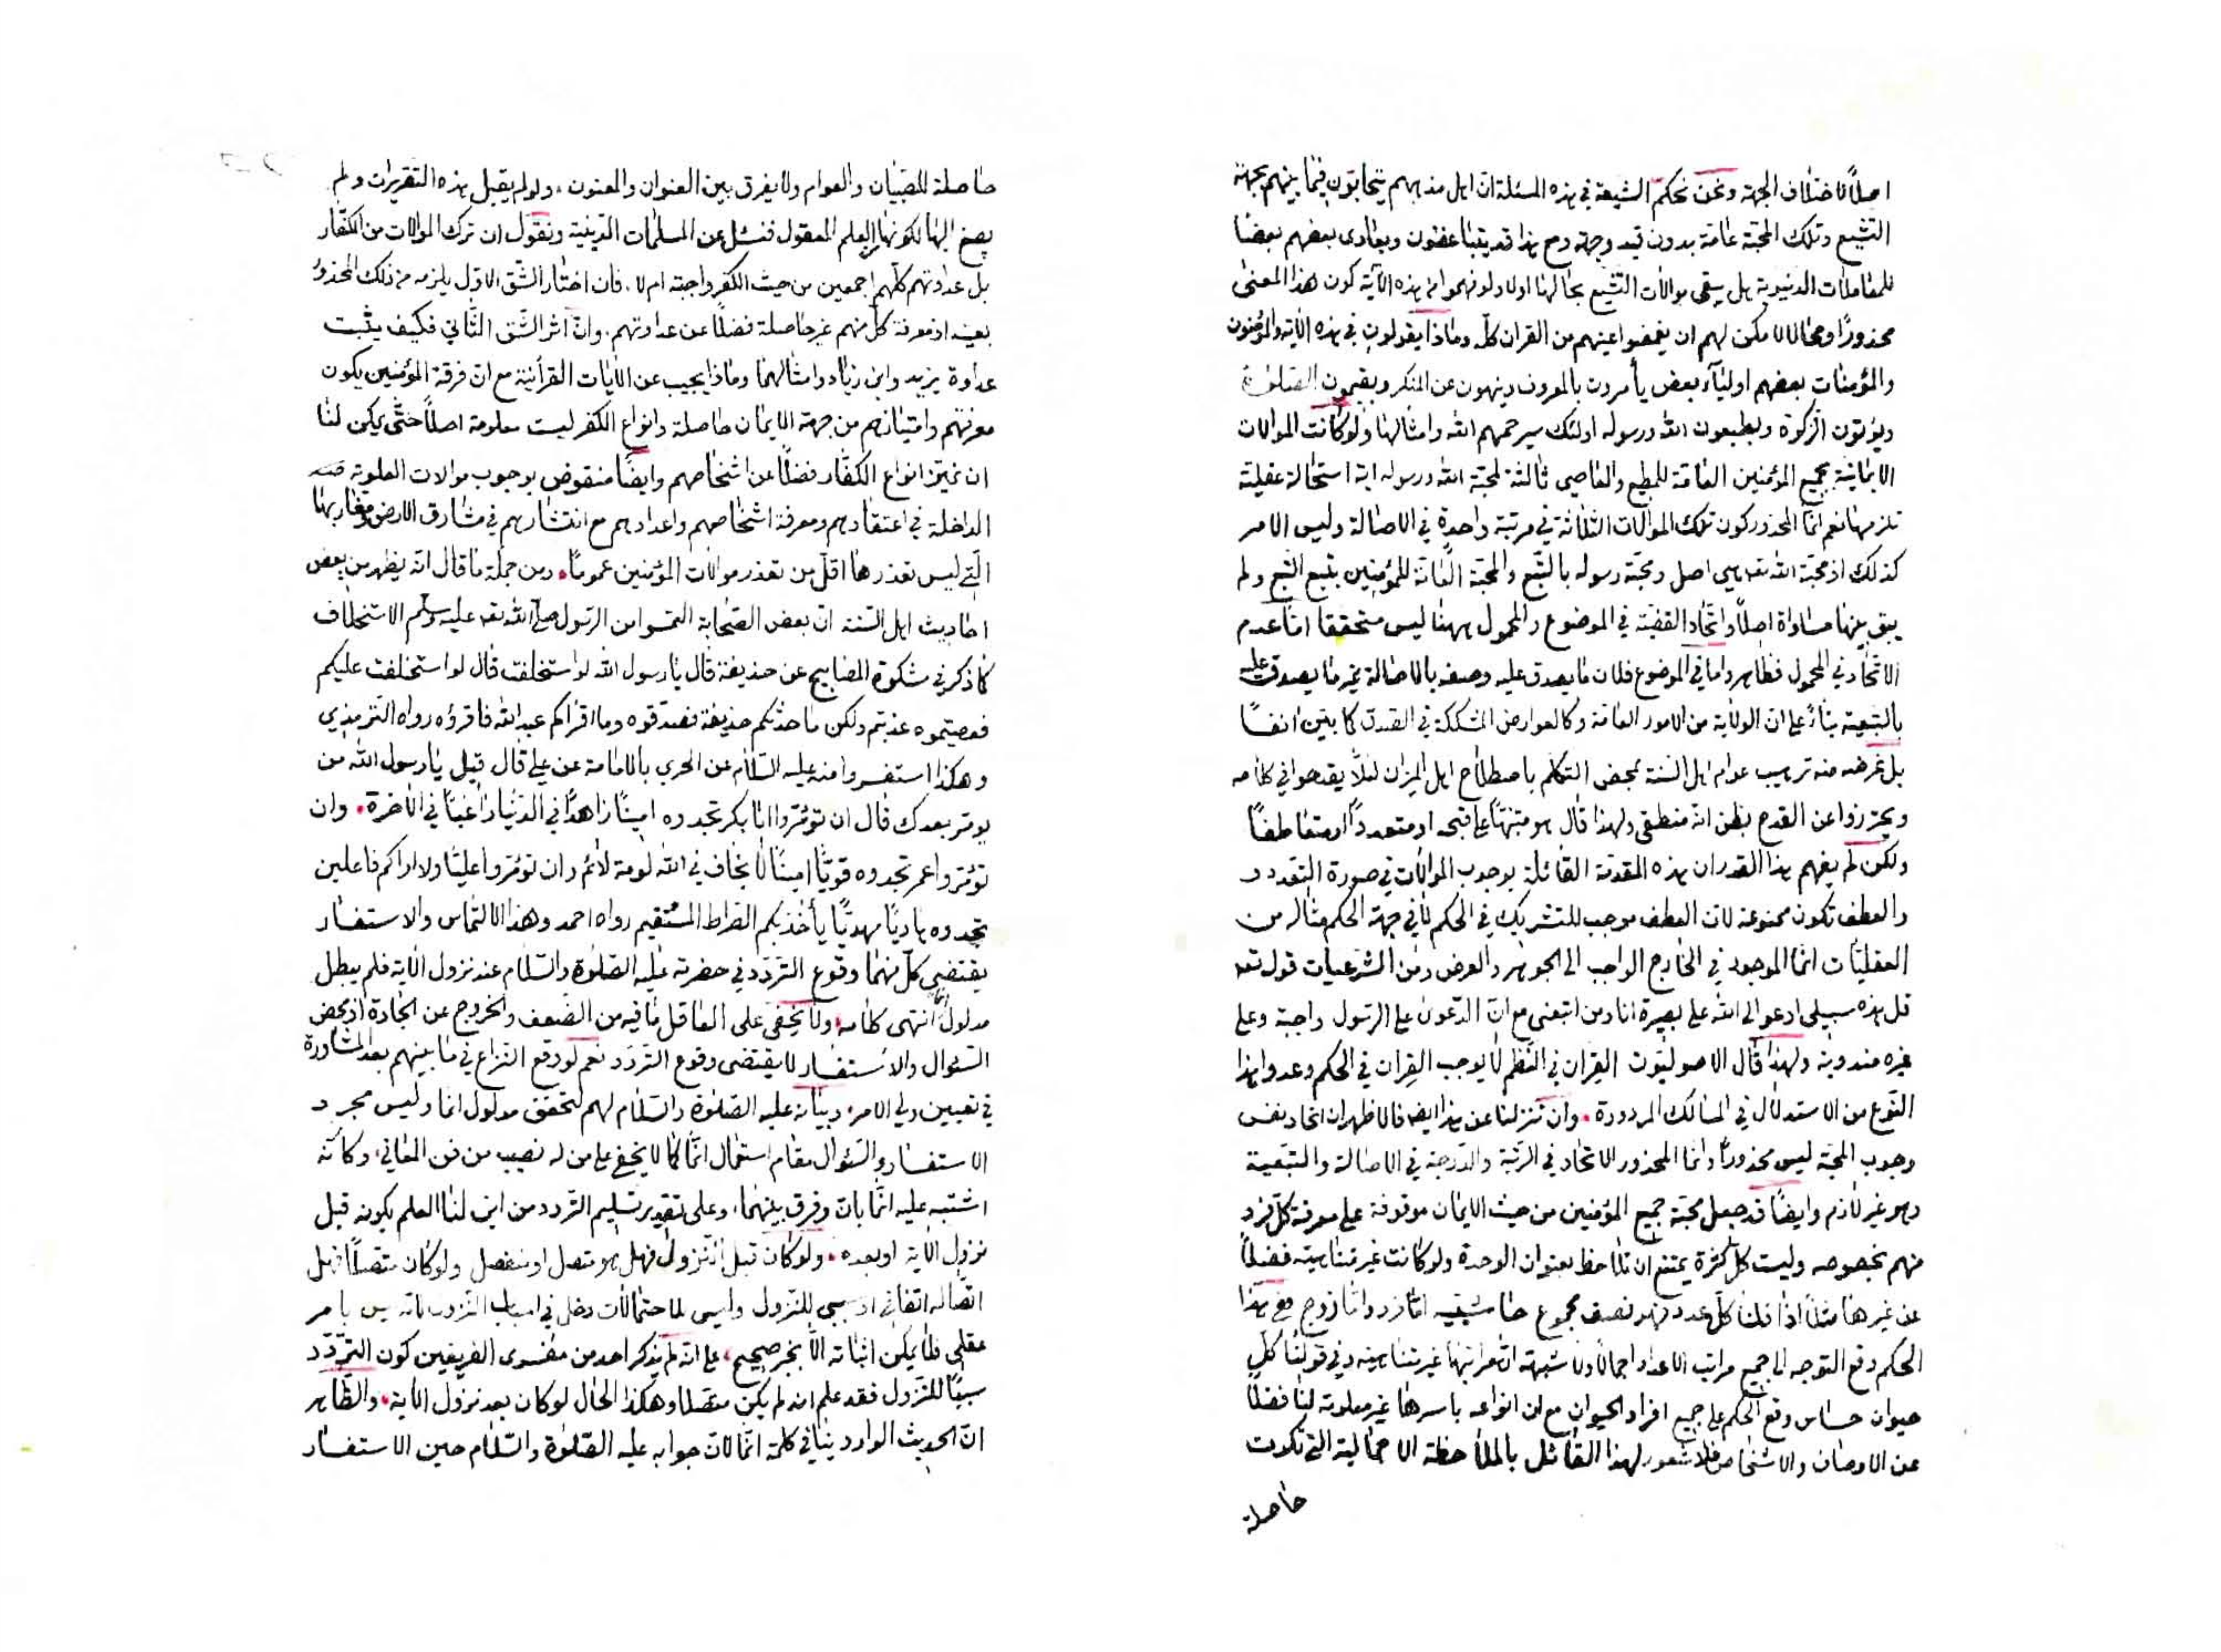 اصلًا لاختلاف الجهة ونحن نحكم الشيعة في هذه المسئلة ان اهل مذهبهم يتحابون فيما بينهم بجهة
التشيع وتلك المحبة عامة بدون قيد وجهة ومع هذا قد يتباغضون ويعادى بعضهم بعضا
للمقاملات الدنيوية هل يبقى موالات التشيع بحالها اولا ولو فهموا من هذه الآية كون هذا المعنى
محذورًا ومحالا لا يمكن لهم ان يغمضوا اعينهم من القران كله وماذا يقولون في هذه الآية والمؤمنون
والمؤمنات بعضهم اوليآء بعض يأمرون بالمعروف وينهون عن المنكر ويقيمون الصلوة
ويؤتون الزكوة ويطيعون الله ورسوله اولئك سيرحمهم الله وامثالها ولو كانت الموالات
الايمانية بجميع المؤمنين العامة للمطيع والعاصي ثالثة لمحبة الله ورسوله اية استحالة عقلية
تلزمها نعم انما المحذور كون تلك الموالات الثلاثة في مرتبة واحدة في الاصالة وليس الامر
كذلك اذ محبة الله تعه هي اصل ومحبة رسوله بالتبع والمحبة العامة للمؤمنين بتبع التبع ولم
يبق بينها مساواة اصلًا واتحاد القضية في الموضوع والمحمول ههنا ليس متحققا اما عدم
الاتحاد في المحمول فظاهر واما في الموضوع فلان ما يصدق عليه وصفه بالاصالة غير ما يصدق عليه
بالتبعية بناءً على ان الولاية من الامور العامة وكالعوارض المشككة في الصدق كما بين انفًا
بل غرضه منه ترهيب عوام اهل السنة بمحض التكلم باصطلاح اهل الميزان لئلا يقدحوا في كلامه
ويحترزوا عن القدح بظن انه منطقي ولهذا قال هو متنبهًا على قبحه او متعددًا او متعاطفًا
ولكن لم يفهم هذا القدر ان هذه المقدمة القائلة بوجوب الموالات في صورة التعدد
والعطف تكون ممنوعة لان العطف موجب للتشريك في الحكم لا في جهة الحكم مثاله من
العقليات انما الموجود في الخارج الواجب الى الجوهر والعرض ومن الشرعيات قوله تعه
قل هذه سبيلى ادعو الى الله على بصيرة انا ومن اتبعنى مع ان الدعوت على الرسول واجبة وعلى
غيره مندوبة ولهذا قال الاصوليون القِران في النظم لا يوجب القِران في الحكم وعدوا هذا
النوع من الاستدلال في المسالك المردودة وان تنزلنا عن هذا ايضا فالاظهر ان اتحاد نفس
وجوب المحبة ليس محذورًا وانما المحذور الاتحاد في الرتبة والدرجة في الاصالة والتبعية
وهو غير لازم وايضًا قد جعل محبة جميع المؤمنين من حيث الايمان موقوفة على معرفة كل فرد
منهم بخصوصه وليست كل كثرة يمتنع ان تلاحظ بعنوان الوحدة ولو كانت غير متناهية فضلًا
عن غيرها مثلًا اذا قلنا كل عدد فهو نصف مجموع حاشيتيه اما فرد واما زوج فمع هذا
الحكم وقع التوجه الى جميع مراتب الاعداد اجمالًا ولا شبهة ان مراتبها غير متناهية وفي قولنا كل
حيوان حساس وقع الحكم على جميع افراد الحيوان مع ان انواعه باسرها غير معلومة لنا فضلًا
عن الاوصاف والاشخاص فلا شعور لهذا القائل بالملاحظة الاجمالية التي تكون
حاصلة
حاصلة للصبيان والعوام ولا يفرق بين العنوان والمعنون ولو لم يقبل هذه التقريرات ولم
يصغ اليها لكونها العلم المعقول فنسئل عن المسلمات الدينية ونقول ان ترك الموالات من الكفار
بل عداوتهم كلهم اجمعين من حيث الكفر واجبة ام لا فان اختار الشق الاول يلزمه من ذلك المحذور
بعينه اذ معرفة كل منهم غير حاصلة فضلًا عن عداوتهم وان اثر الشق الثاني فكيف يثبت
عداوة يزيد وابن زياد وامثالهما وماذا يجيب عن الآيات القرآنية مع ان فرقة المؤمنين يكون
معرفتهم وامتيازهم من جهة الايمان حاصلة وانواع الكفر ليست معلومة اصلًا حتى يمكن لنا
ان نميز انواع الكفار فضلًا عن اشخاصهم وايضًا منقوض بوجوب موالات العلوية
الداخلة في اعتقادهم ومعرفة اشخاصهم واعدادهم مع انتشارهم في مشارق الارض ومغاربها
التي ليس تعذرها اقل من تعذر موالات المؤمنين عمومًا ومن جملة ما قال انه يظهر من بعض
احاديث اهل السنة ان بعض الصحابة التمسوا من الرسول صلى الله تعه عليه وسلم الاستخلاف
كما ذكر في مشكوة المصابيح عن حذيفة قال يا رسول الله لو استخلفت قال لو استخلفت عليكم
فعصيتموه عذبتم ولكن ما حدثكم حذيفة فصدقوه وما اقرأكم عبد الله فاقرؤه رواه الترمذي
وهكذا استفسروا منه عليه السلام عن الحري بالامامة عن علي قال قيل يا رسول الله من
يؤمر بعدك قال ان تؤمروا ابا بكر تجدوه امينًا زاهدًا في الدنيا راغبًا في الآخرة وان
تؤمروا عمر تجدوه قويًا امينًا لا يخاف في الله لومة لائم وان تؤمروا عليًا ولا اراكم فاعلين
تجدوه هاديًا مهديًا يأخذ بكم الصراط المستقيم رواه احمد وهذا الالتماس والاستفسار
يقتضي كل منهما وقوع التردد في حضرته عليه الصلوة والسلام عند نزول الآية فلم يبطل
مدلول انما انتهى كلامه ولا يخفى على العاقل ما فيه من الضعف والخروج عن الجادة اذ محض
السؤال والاستفسار لا يقتضى وقوع التردد نعم لو وقع النزاع في ما بينهم بعد المشاورة
في تعيين ولي الامر وبيانه عليه الصلوة والسلام لهم لتحقق مدلول انما وليس مجرد
الاستفسار والسؤال مقام استعمال انما كما لا يخفى على من له نصيب من فن المعاني وكانه
اشتبه عليه انما بان وفرق بينهما وعلى تقدير تسليم التردد من اين لنا العلم بكونه قبل
نزول الآية او بعده ولو كان قبل النزول فهل هو متصل او منفصل ولو كان متصلًا فهل
اتصاله اتفاقي او سببي للنزول وليس لاحتمالات دخل في اسباب النزول لانه ليس بامر
عقلي فلا يمكن اثباته الا بخبر صحيح على انه لم يذكر احد من مفسرى الفريقين كون التردد
سببًا للنزول فقد علم انه لم يكن متصلا وهكذا الحال لو كان بعد نزول الآية والظاهر
ان الحديث الوارد ينافي كلمة انما لان جوابه عليه الصلوة والسلام حين الاستفسار